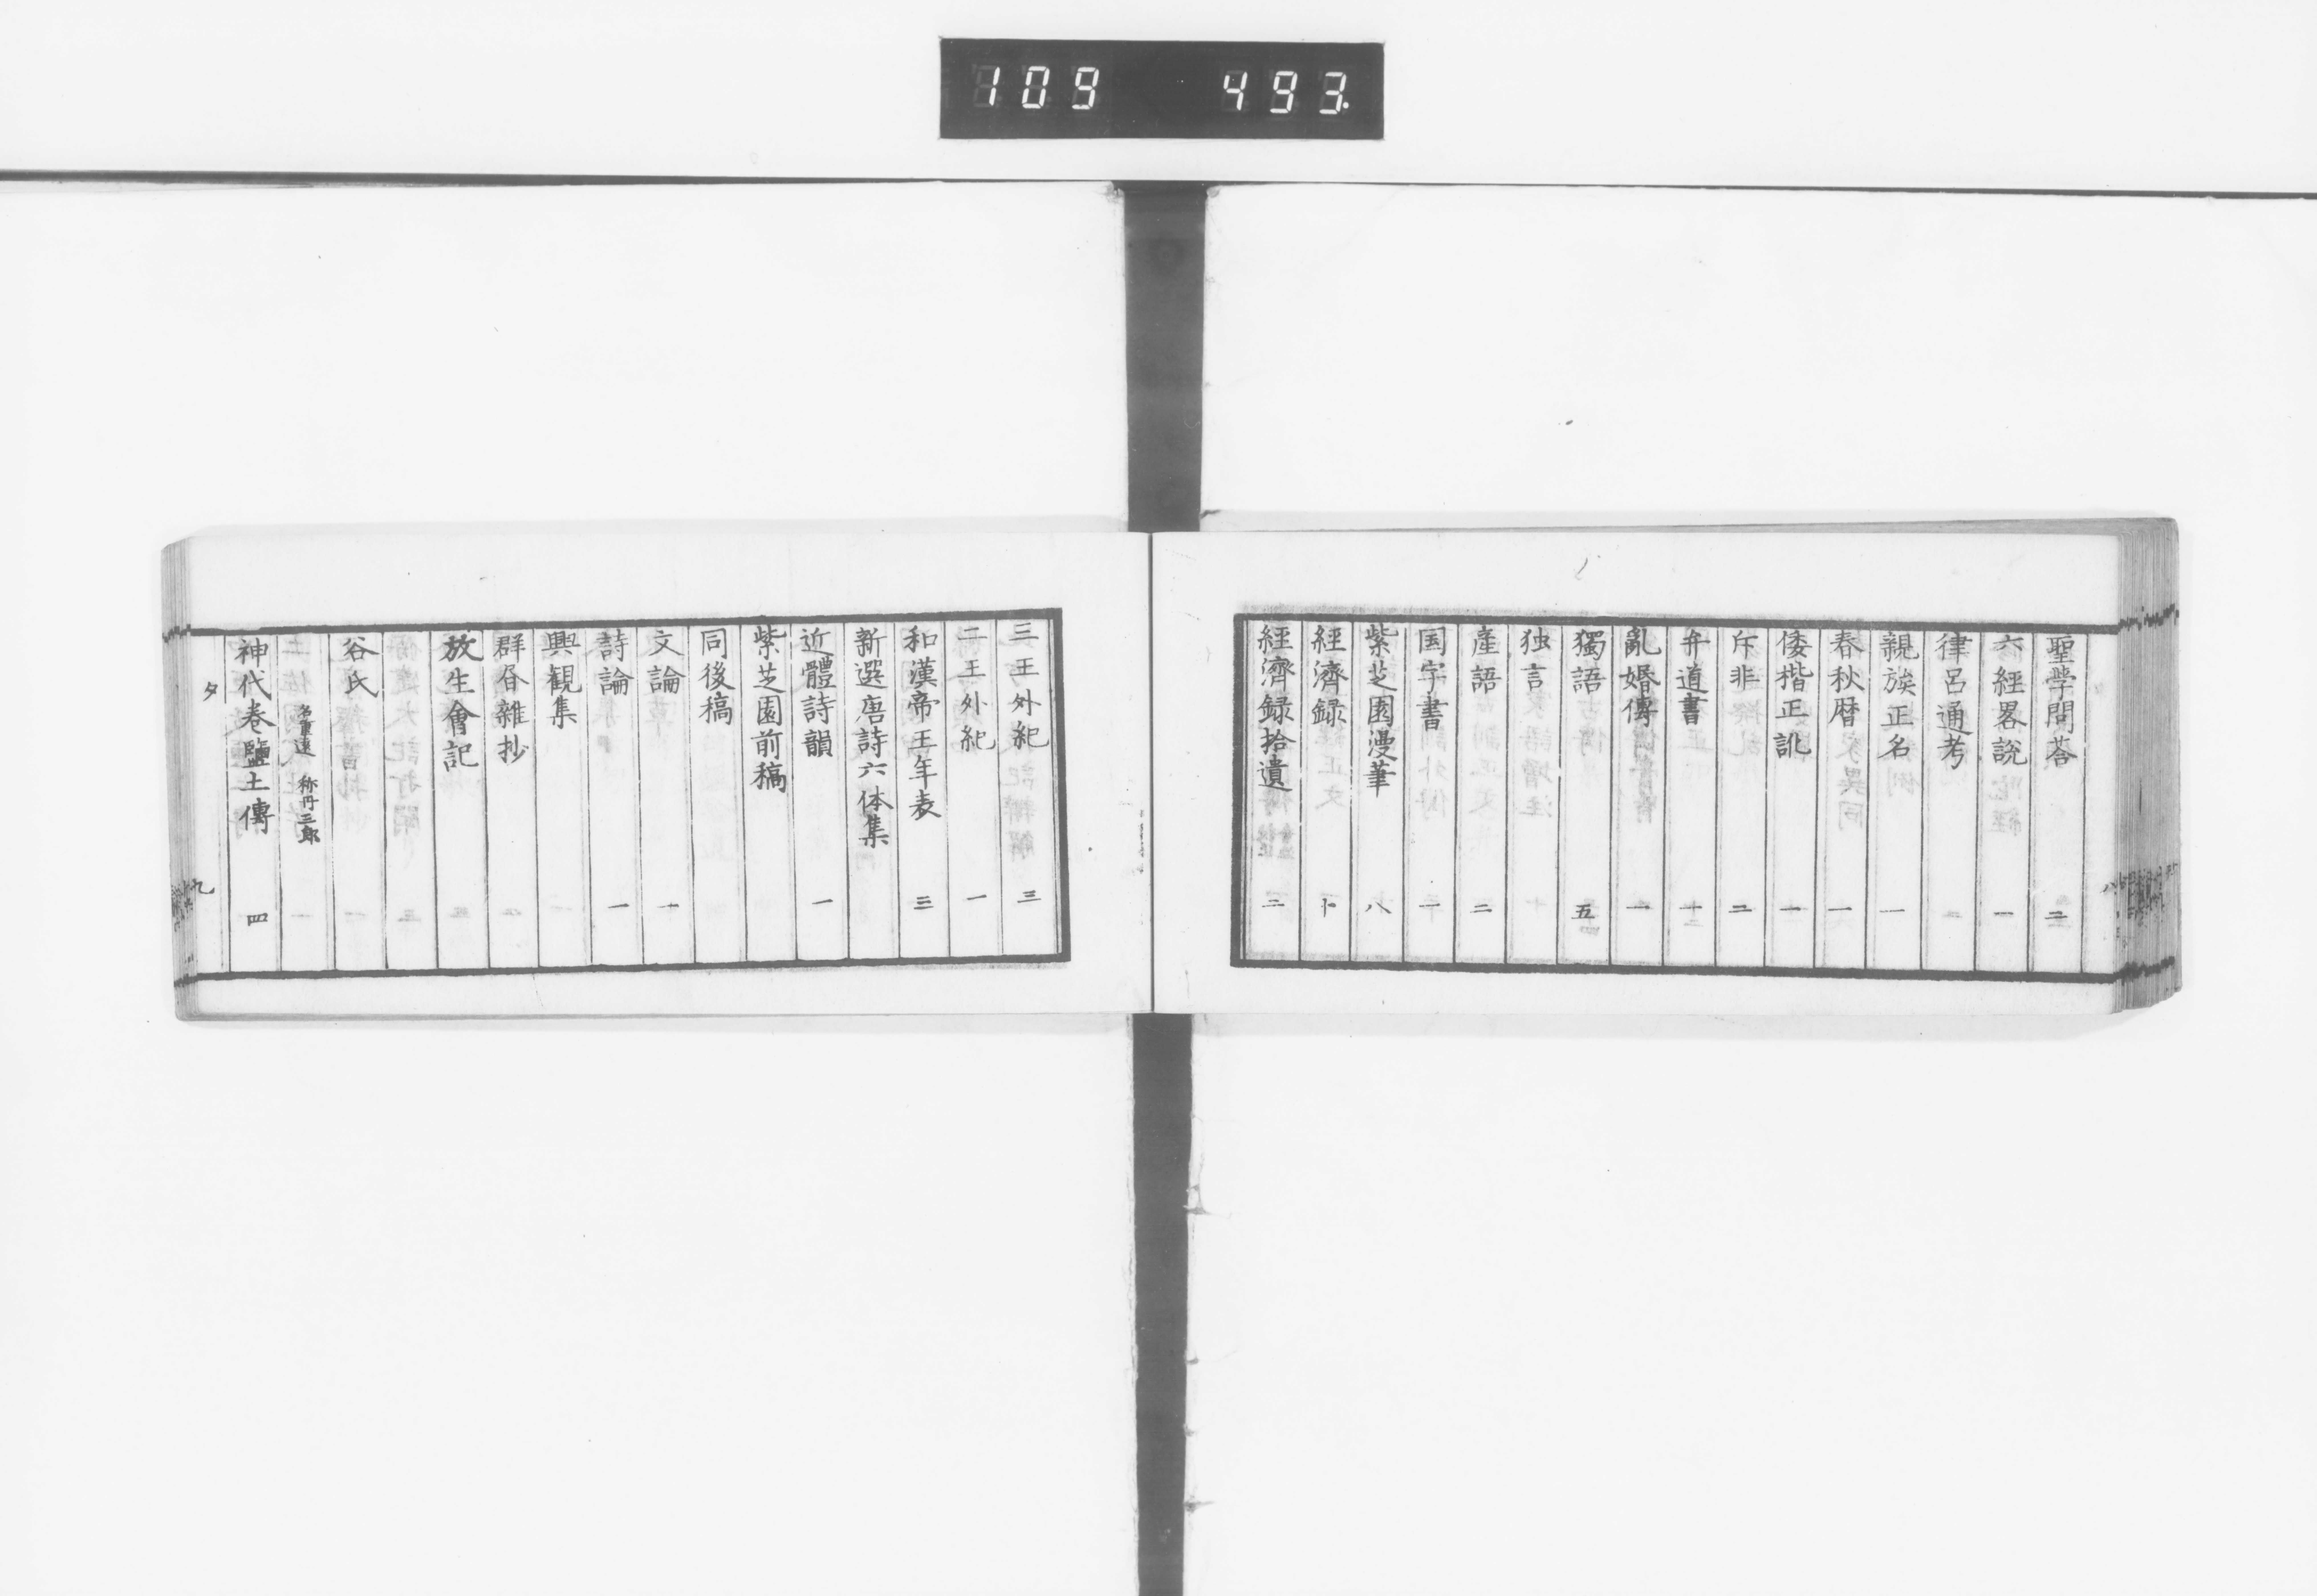 109 493
聖学問荅 二
六經畧説 一
律呂通考
親族正名 一
春秋暦 一
倭楷正訛 一
斥非 二
弁道書
亂婚傳 一
獨語 五
独言
産語 二
国字書 一
紫芝園漫筆 八
經濟録 十
經濟録拾遺 二
三王外紀 三
二王外紀 一
和漢帝王年表 三
新選唐詩六体集
近體詩韻 一
紫芝園前稿
同後稿
文論 一
詩論 一
興観集
群昏雜抄
放生會記
谷氏
名重遠 称丹三郎
神代巻鹽土傳 四
タ 九